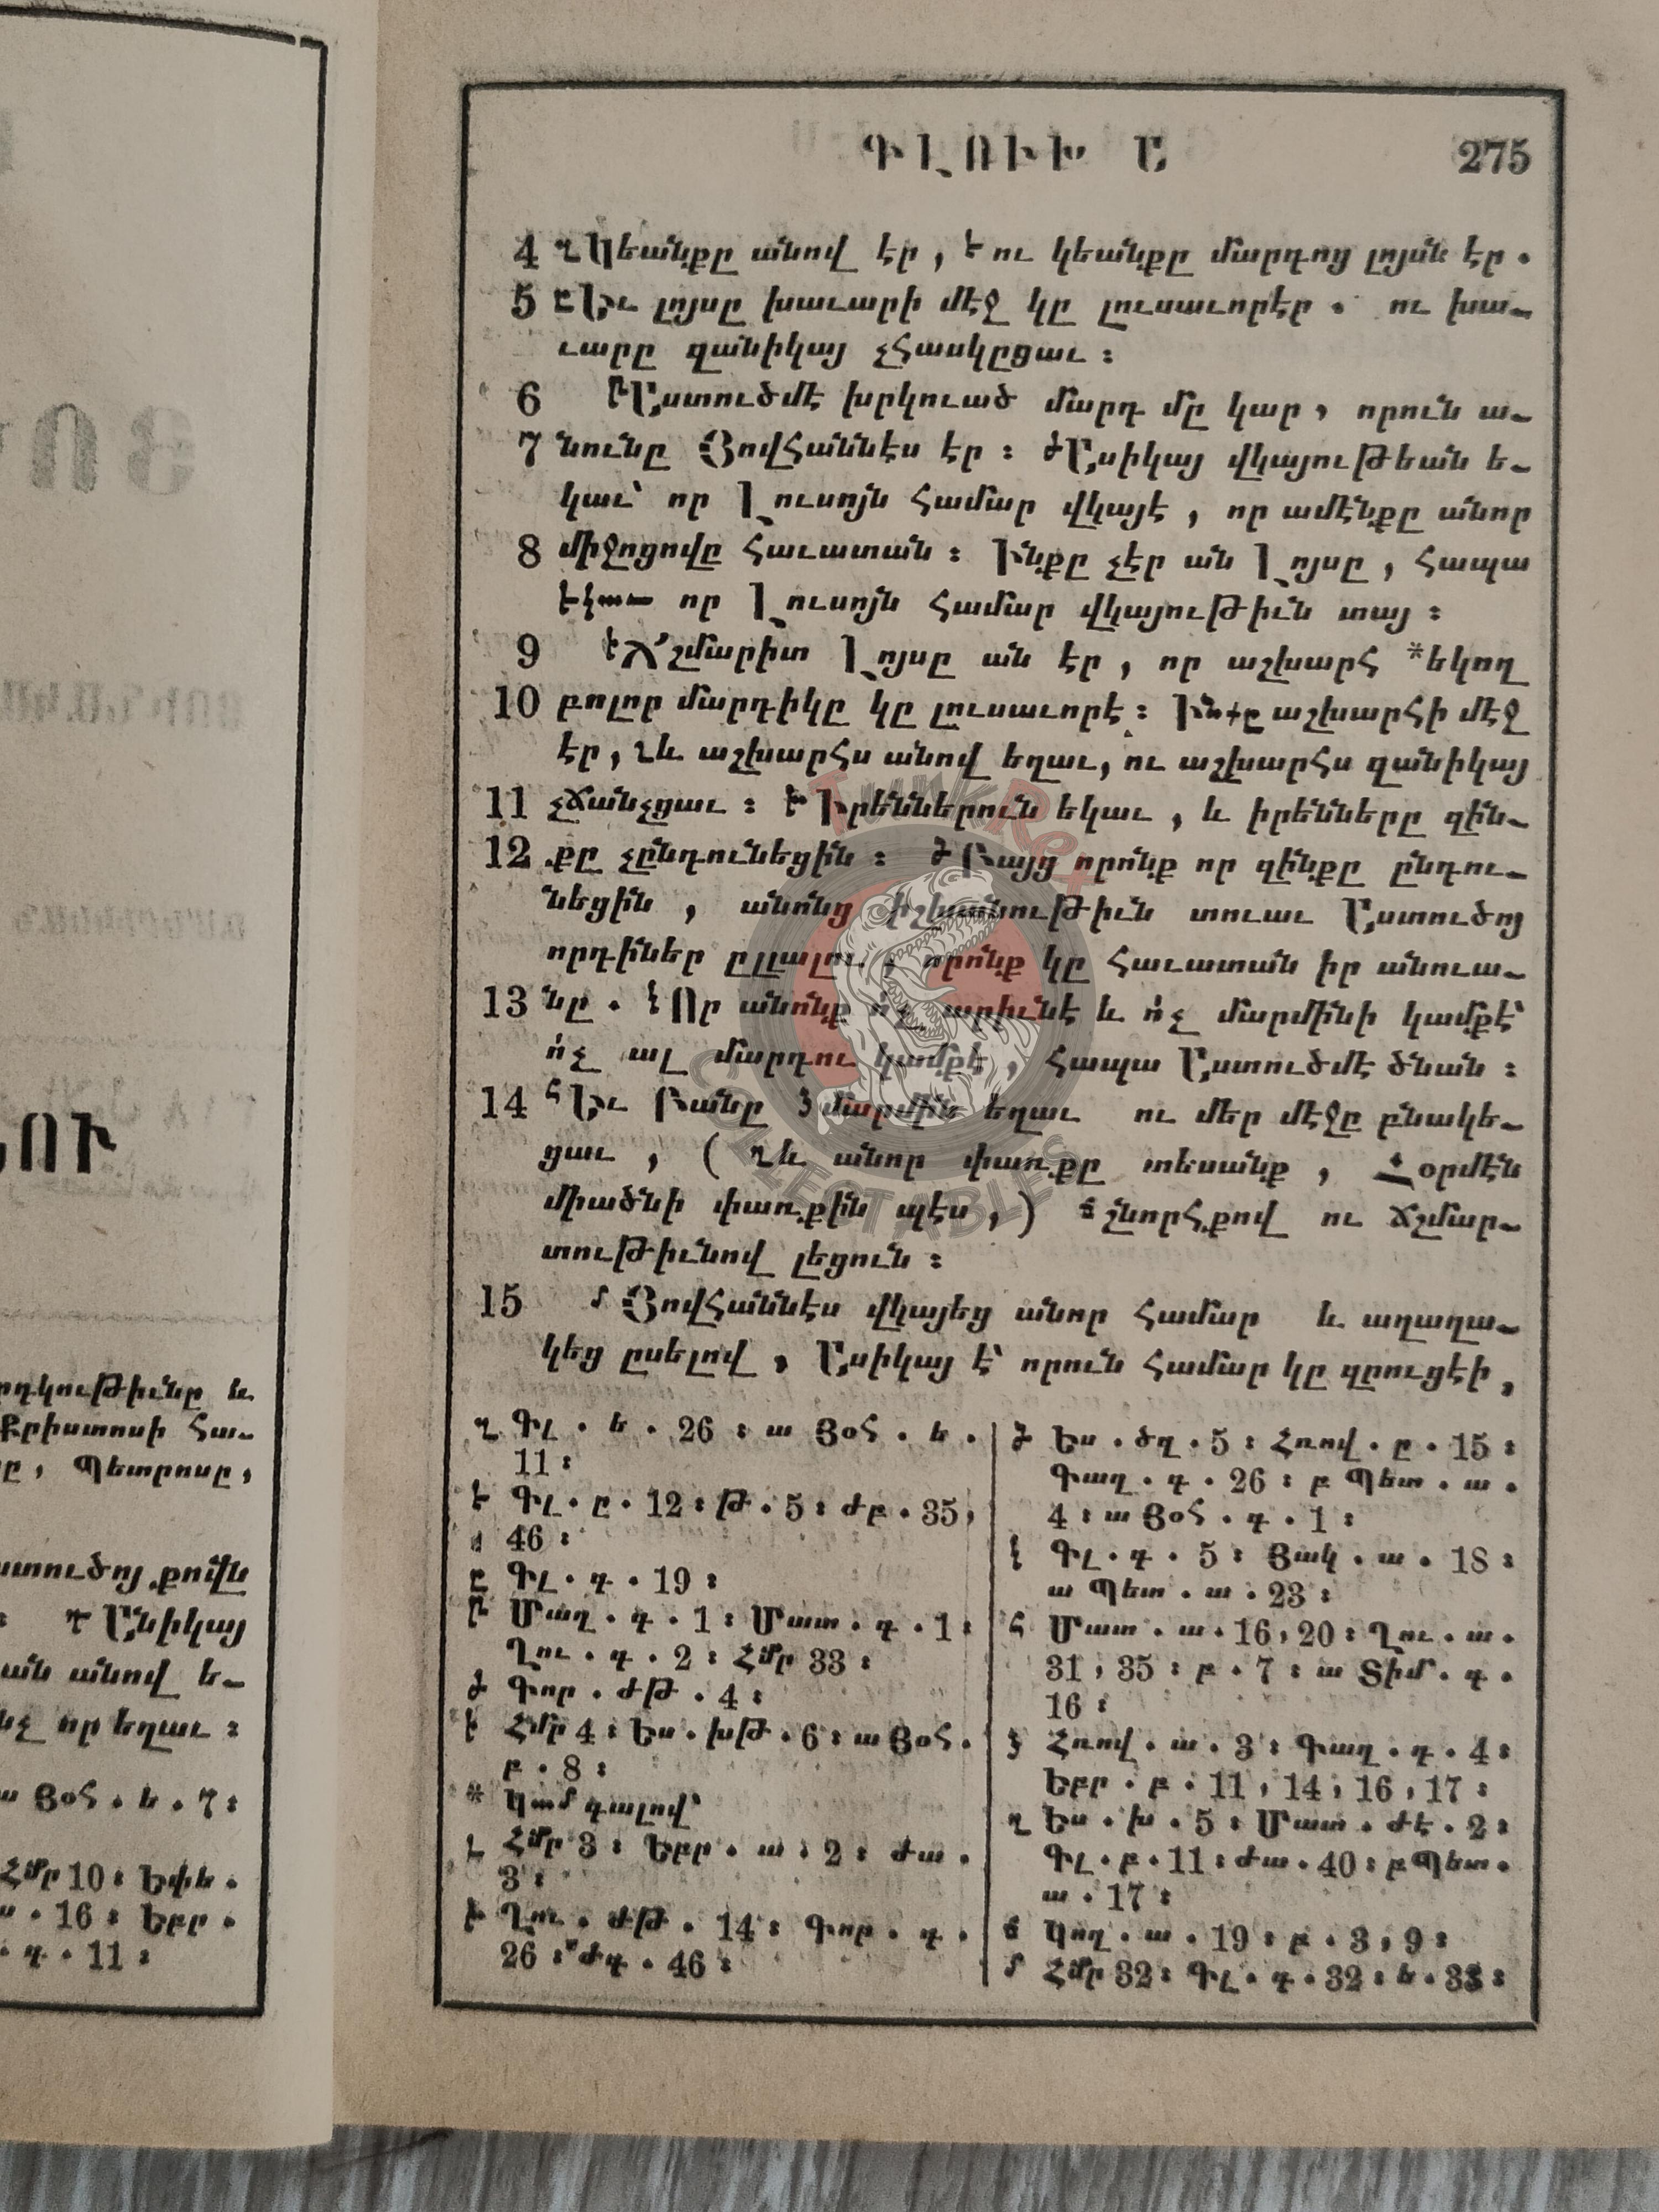 ԳԼՈՒԽ Ա 275
4 Կեանքը անով էր, ու կեանքը մարդոց լոյսն էր.
5 Եւ լոյսը խաւարի մէջ կը լուսաւորէր. ու խա֊
ւարը զանիկայ չհասկըցաւ։
6 Աստուծմէ խրկուած մարդ մը կար, որուն ա֊
7 նունը Յովհաննէս էր։ Ասիկայ վկայութեան ե֊
կաւ՝ որ Լուսոյն համար վկայէ, որ ամէնքը անոր
8 միջոցովը հաւատան։ Ինքը չէր ան Լոյսը, հապա
եկաւ որ Լուսոյն համար վկայութիւն տայ։
9 Ճշմարիտ Լոյսը ան էր, որ աշխարհ *եկող
10 բոլոր մարդիկը կը լուսաւորէ։ Ինքը աշխարհի մէջ
էր, և աշխարհս անով եղաւ, ու աշխարհս զանիկայ
11 չճանչցաւ։ Իրեններուն եկաւ, և իրենները զին֊
12 քը չընդունեցին։ Բայց որոնք որ զինքը ընդու֊
նեցին, անոնց իշխանութիւն տուաւ Աստուծոյ
որդիներ ըլլալու, որոնք կը հաւատան իր անուա֊
13 նը. Որ անոնք ո՛չ արիւնէ և ո՛չ մարմինի կամքէ՝
ո՛չ ալ մարդու կամքէ, հապա Աստուծմէ ծնան։
14 Եւ Բանը մարմին եղաւ ու մեր մէջը բնակե֊
ցաւ, (և անոր փառքը տեսանք, Հօրմէն
միածնի փառքին պէս,) շնորհքով ու ճշմար֊
տութիւնով լեցուն։
15 Յովհաննէս վկայեց անոր համար և աղաղա֊
կեց ըսելով, Ասիկայ է՝ որուն համար կը զրուցէի,
Գլ. ե. 26։ ա Յօհ. ե.
11։
Գլ. ը. 12։ թ. 5։ ժբ. 35,
46։
Գլ. գ. 19։
Մաղ. գ. 1։ Մատ. գ. 1։
Ղու. գ. 2։ Հմր 33։
Գոր. ժթ. 4։
Հմր 4։ Ես. խթ. 6։ ա Յօհ.
բ. 8։
* Կամ գալով՝
Հմր 3։ Եբր. ա. 2։ ժա.
3։
Ղու. ժթ. 14։ Գոր. գ.
26։ ժգ. 46։
Ես. ծղ. 5։ Հռով. ը. 15։
Գաղ. գ. 26։ բ Պետ. ա.
4։ ա Յօհ. գ. 1։
Գլ. գ. 5։ Յակ. ա. 18։
ա Պետ. ա. 23։
Մատ. ա. 16, 20։ Ղու. ա.
31, 35։ բ. 7։ ա Տիմ. գ.
16։
Հռով. ա. 3։ Գաղ. դ. 4։
Եբր. բ. 11, 14, 16, 17։
Ես. խ. 5։ Մատ. ժէ. 2։
Գլ. բ. 11։ ժա. 40։ բ Պետ.
ա. 17։
Կող. ա. 19։ բ. 3, 9։
Հմր 32։ Գլ. գ. 32։ ե. 33։